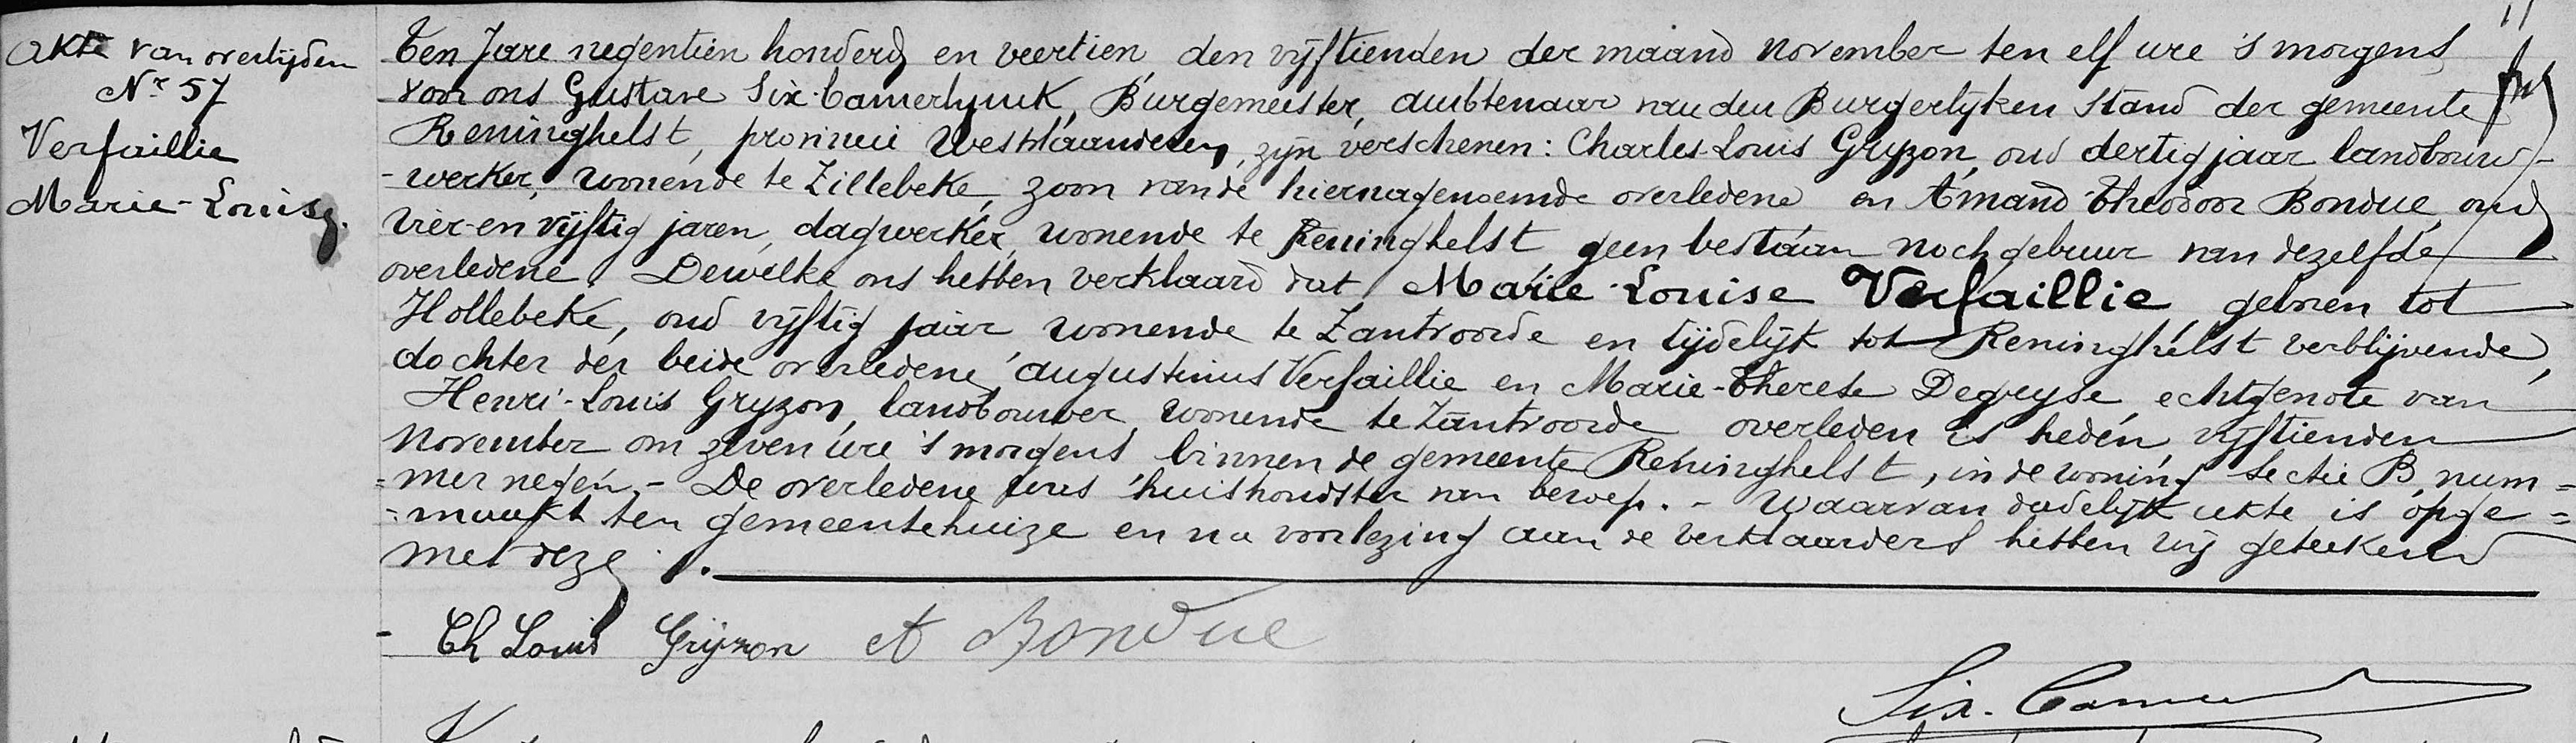 Akte van overlijden
Nr 57
Verfaillie
Marie-Louise.
Ten Jare negentien honderd en veertien, den vijftienden der maand November ten elf ure 's morgens,
voor ons Gustave Six-Camerlynck, Burgemeester, ambtenaar van den Burgerlijken Stand der gemeente
Reninghelst, provincie Westvlaanderen, zijn verschenen: Charles-Louis Gryzon, oud dertig jaar, landbouw-
-werker, wonende te Zillebeke, zoon van de hiernagenoemde overledene en Amand-Theodoor Bondue, oud
vier-en vijftig jaren, dagwerker, wonende te Reninghelst, geen bestaan noch gebuur van dezelfde
overledene. Dewelke ons hebben verklaard dat Marie-Louise Verfaillie, geboren tot
Hollebeke, oud vijftig jaar, wonende te Zantvoorde en tijdelijk tot Reninghelst verblijvende,
dochter der beide overledene, Augustinus Verfaillie en Marie-Therese Degryse, echtgenote van
Henri-Louis Gryzon, landbouwer, wonende te Zantvoorde overleden is heden, vijftienden
November om zeven ure 's morgens, binnen de gemeente Reninghelst, in de woning sectie B, num=
=mer negen. - De overledene was huishoudster van beroep. - Waarvan dadelijk akte is opge=
=maakt ten gemeentehuize en na voorlezing aan de verklaarders hebben wij geteekend
met deze.
Ch Louis Gryzon A Bondue
Six-Camer